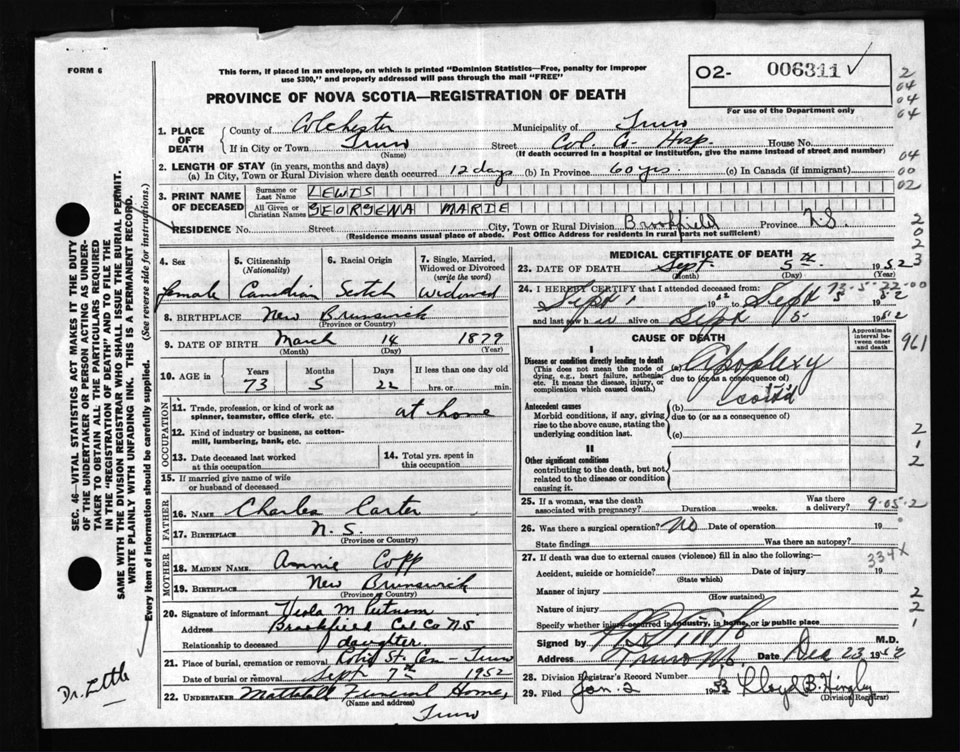 FORM 6
This form, if placed in an envelope, on which is printed "Dominion Statistics—Free, penalty for improper
use $300," and properly addressed will pass through the mail "FREE"
02- 006311 ✓
For use of the Department only
PROVINCE OF NOVA SCOTIA—REGISTRATION OF DEATH
1. PLACE OF DEATH { County of Colchester Municipality of Truro
If in City or Town Truro (Name) Street Col. Co. Hosp. House No.
(If death occurred in a hospital or institution, give the name instead of street and number)
2. LENGTH OF STAY (in years, months and days)
(a) In City, Town or Rural Division where death occurred 12 days (b) In Province 60 yrs. (c) In Canada (if immigrant)
3. PRINT NAME OF DECEASED { Surname or Last Name LEWIS
All Given or Christian Names GEORGENA MARIE
RESIDENCE No. Street City, Town or Rural Division Brookfield Province N.S.
(Residence means usual place of abode. Post Office Address for residents in rural parts not sufficient)
4. Sex female
5. Citizenship (Nationality) Canadian
6. Racial Origin Scotch
7. Single, Married, Widowed or Divorced (write the word) Widowed
8. BIRTHPLACE New Brunswick
(Province or Country)
9. DATE OF BIRTH March 14 1879
(Month) (Day) (Year)
10. AGE in { Years 73 Months 5 Days 22 If less than one day old hrs. or min.
OCCUPATION
11. Trade, profession, or kind of work as spinner, teamster, office clerk, etc. at home
12. Kind of industry or business, as cotton-mill, lumbering, bank, etc.
13. Date deceased last worked at this occupation
14. Total yrs. spent in this occupation
15. If married give name of wife or husband of deceased
FATHER
16. NAME Charles Carter
17. BIRTHPLACE N.S.
(Province or Country)
MOTHER
18. MAIDEN NAME Annie Copp
19. BIRTHPLACE New Brunswick
(Province or Country)
20. Signature of informant Viola M Putnam
Address Brookfield Col Co N.S
Relationship to deceased daughter
21. Place of burial, cremation or removal Robie St. Cem - Truro
Date of burial or removal Sept 7th 1952
22. UNDERTAKER Mattatall Funeral Home,
(Name and address)
Truro
MEDICAL CERTIFICATE OF DEATH
23. DATE OF DEATH Sept. 5th 1952
(Month) (Day) (Year)
24. I HEREBY CERTIFY that I attended deceased from:
73-5-22-00
Sept 1 1952 to Sept 5 1952
and last saw her alive on Sept 5 1952
CAUSE OF DEATH
Approximate interval between onset and death
961
I
Disease or condition directly leading to death
(This does not mean the mode of dying, e.g., heart failure, asthenia, etc. It means the disease, injury, or complication which caused death.)
(a) Apoplexy
due to (or as a consequence of)
Antecedent causes
Morbid conditions, if any, giving rise to the above cause, stating the underlying condition last.
(b)
due to (or as a consequence of)
(c)
II
Other significant conditions
contributing to the death, but not related to the disease or condition causing it.
25. If a woman, was the death associated with pregnancy? Duration weeks. Was there a delivery?
9-05-2
26. Was there surgical operation? No Date of operation 19
State findings Was there an autopsy?
27. If death was due to external causes (violence) fill in also the following:—
334X
Accident, suicide or homicide? (State which) Date of injury 19
Manner of injury
(How sustained)
Nature of injury
Specify whether injury occurred in industry, in home, or in public place
Signed by M.D.
Address Truro Date Dec 23 1952
28. Division Registrar's Record Number
29. Filed Jan. 2 1953 Lloyd B. Hingley
(Division Registrar)
SEC. 46—VITAL STATISTICS ACT MAKES IT THE DUTY
OF THE UNDERTAKER OR PERSON ACTING AS UNDERTAKER TO OBTAIN ALL THE PARTICULARS REQUIRED
IN THE "REGISTRATION OF DEATH" AND TO FILE THE
SAME WITH THE DIVISION REGISTRAR WHO SHALL ISSUE THE BURIAL PERMIT.
WRITE PLAINLY WITH UNFADING INK. THIS IS A PERMANENT RECORD.
Every item of information should be carefully supplied. (See reverse side for instructions.)
Dr. Little
2
04
04
64
04
00
02
2
0
2
3
2
1
2
2
2
1